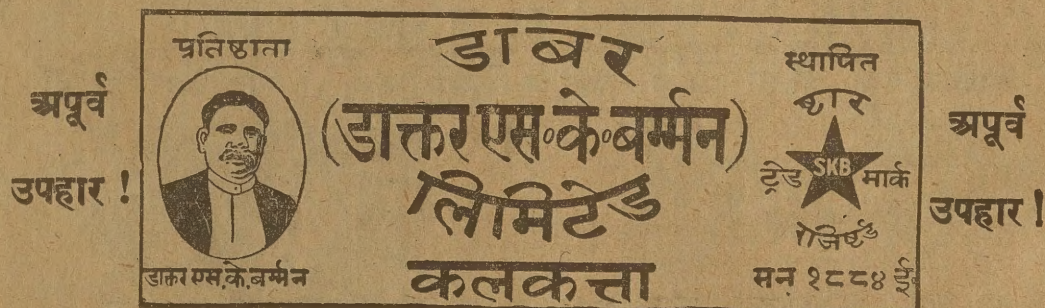 अपूर्व
उपहार !
प्रतिष्ठाता
डाक्तर एस.के.बर्म्मन
डाबर
(डाक्तर एस॰के॰बर्म्मन)
लिमिटेड
कलकत्ता
स्थापित
ष्टार
ट्रेड SKB मार्क
रजिष्टर्ड
सन् १८८४ ई॰
अपूर्व
उपहार !